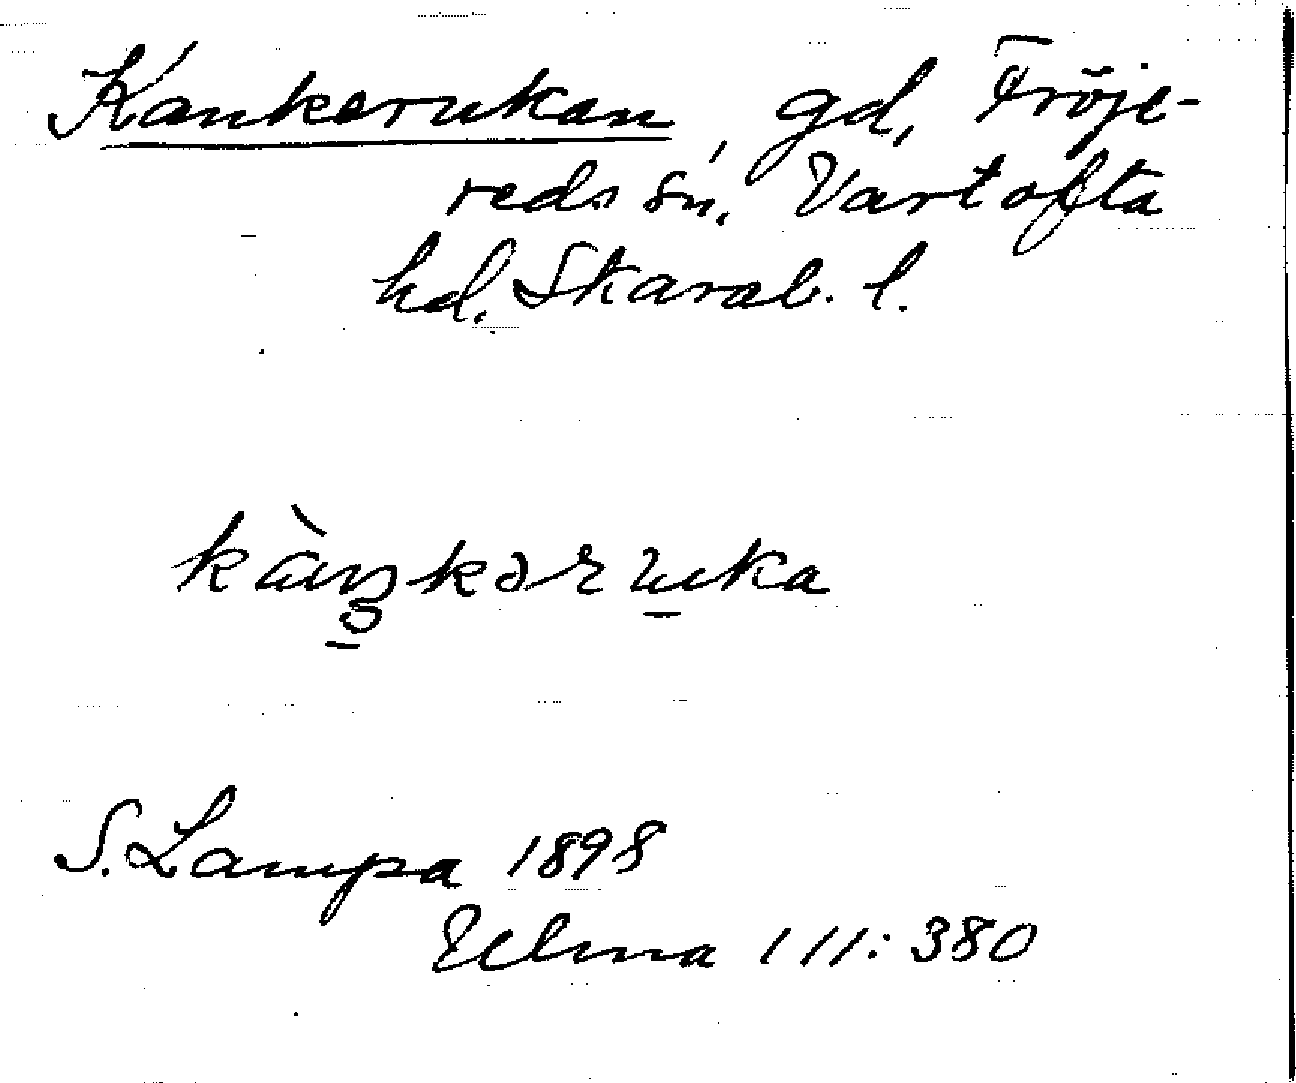 Kankerukan, gd, Fröje-
reds sn, Vartofta
hd. Skarab. l.
kàŋkəruka
S. Lampa 1898
Ulma 111: 380